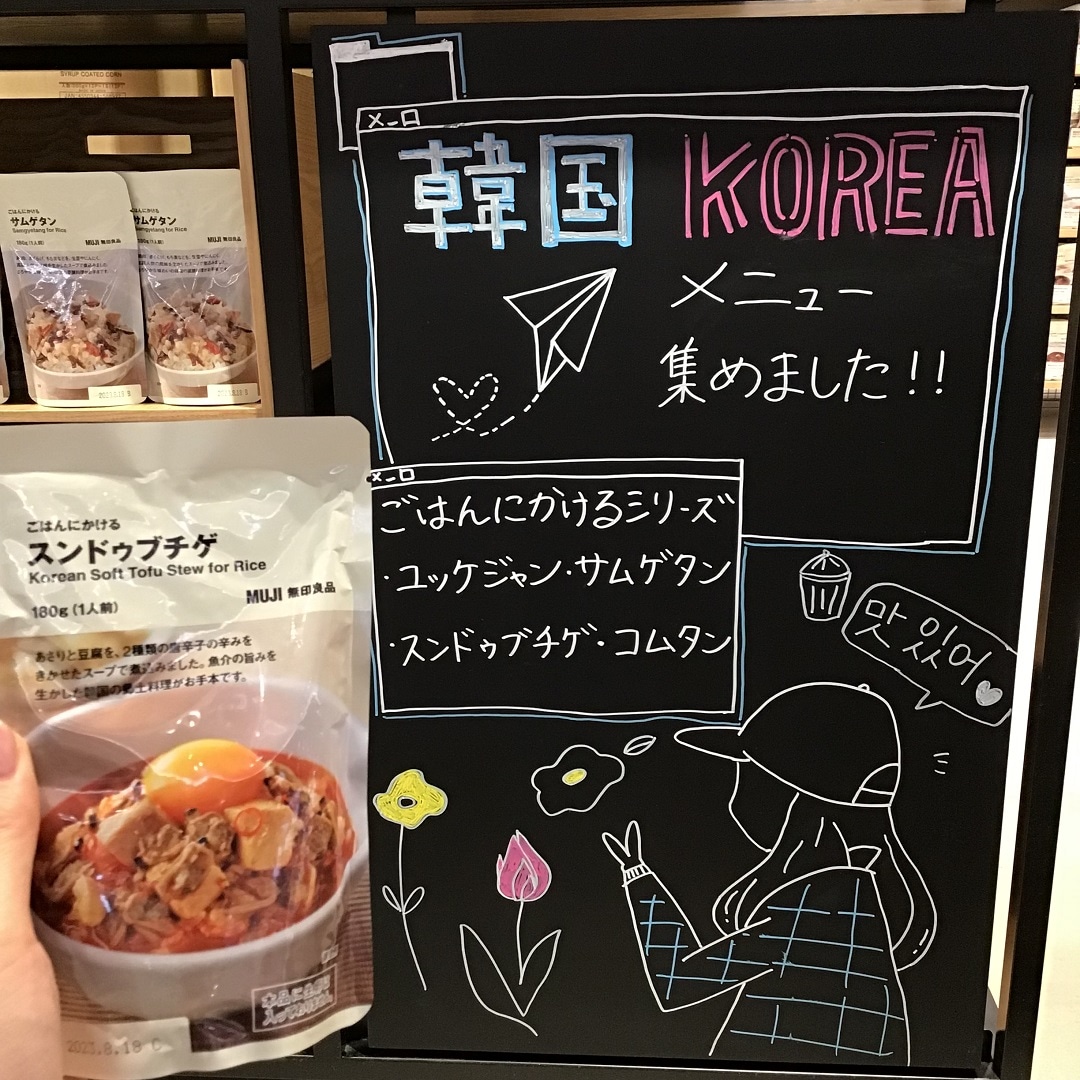 SYRUP COATED CORN
ごはんにかける
サムゲタン
Samgyetang for Rice
180g(1人前)
MUJI 無印良品
ごはんにかける
サムゲタン
Samgyetang for Rice
180g(1人前)
MUJI 無印良品
韓国 KOREA
メニュー
集めました!!
ごはんにかけるシリーズ
・ユッケジャン・サムゲタン
・スンドゥブチゲ・コムタン
맛있어
ごはんにかける
スンドゥブチゲ
Korean Soft Tofu Stew for Rice
180g(1人前)
MUJI 無印良品
あさりと豆腐を、2種類の唐辛子の辛みを
きかせたスープで煮込みました。魚介の旨みを
生かした韓国の郷土料理がお手本です。
2023.8.18 C